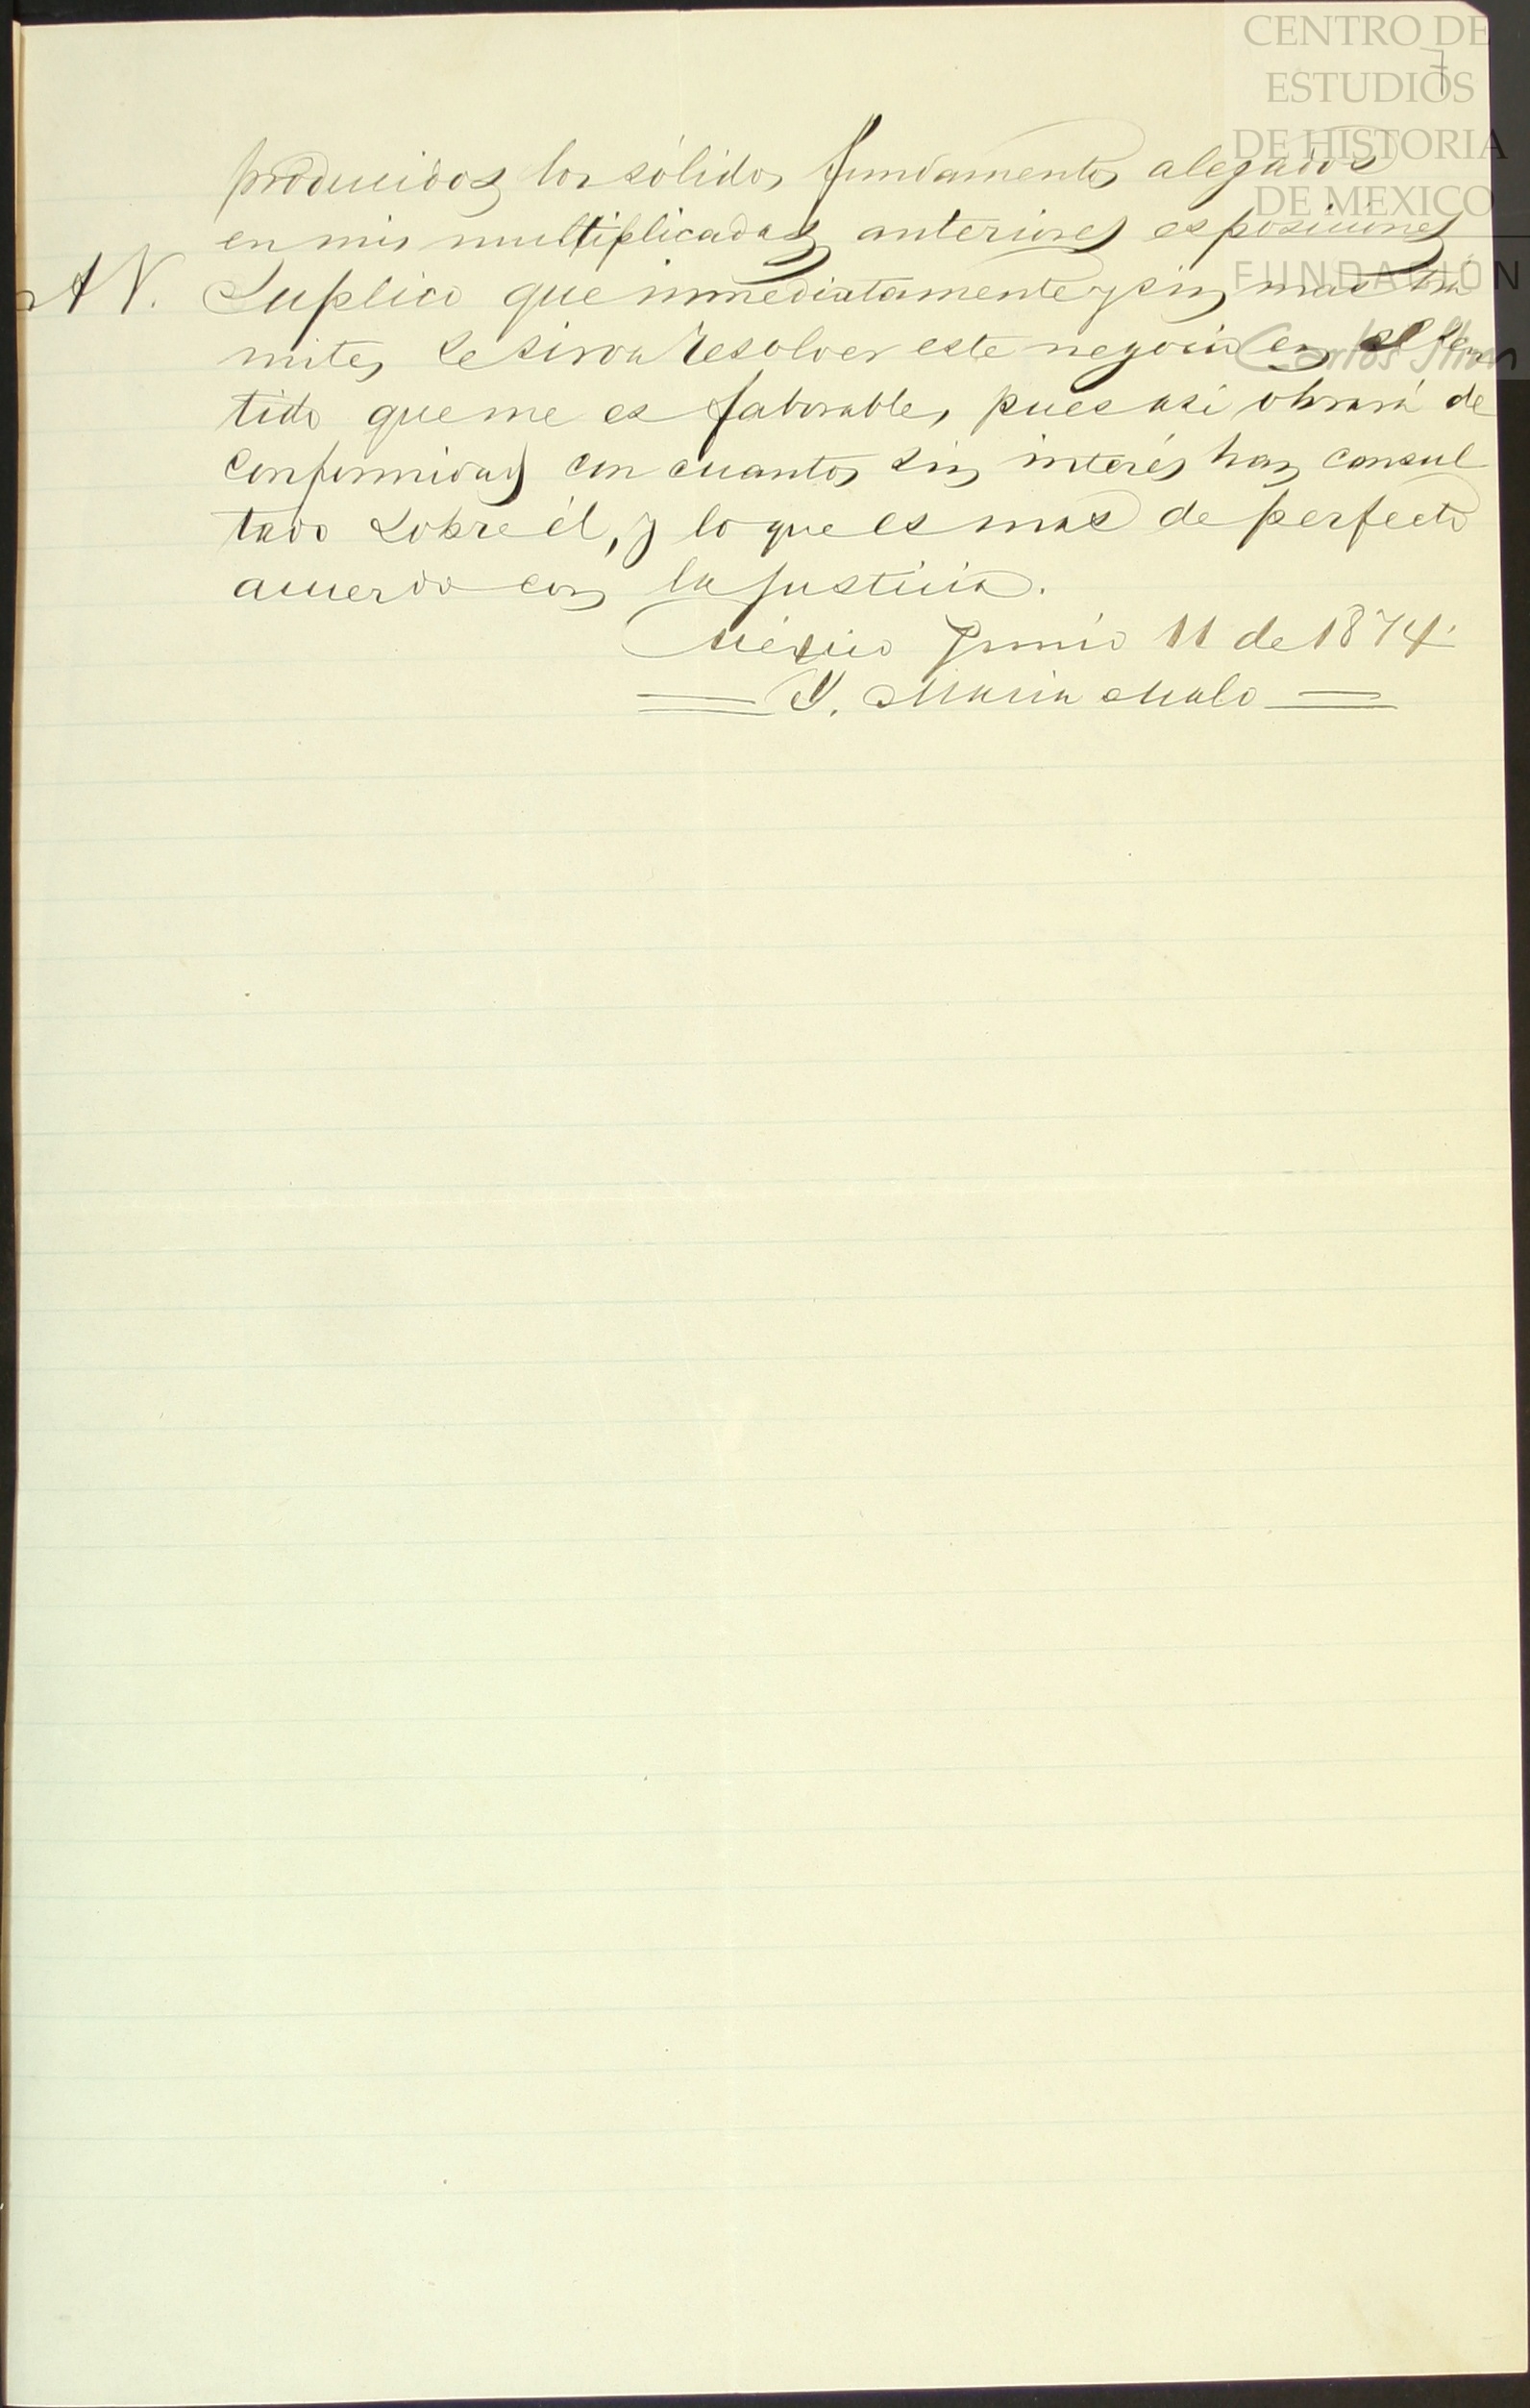 CENTRO DE
ESTUDIOS
DE HISTORIA
DE MEXICO
FUNDACIÓN
Carlos Slim
7
producidos los sólidos fundamentos alegados
en mis multiplicadas anteriores esposiciones
A V. Suplico que inmediatamente y sin mas trá
mites se sirva resolver este negocio en el sen
tido que me es faborable, pues asi obrará de
conformidad con cuantos sin interés han consul
tado sobre él, y lo que es mas de perfecto
acuerdo con la justicia.
México Junio 11 de 1874.
J. Maria Malo